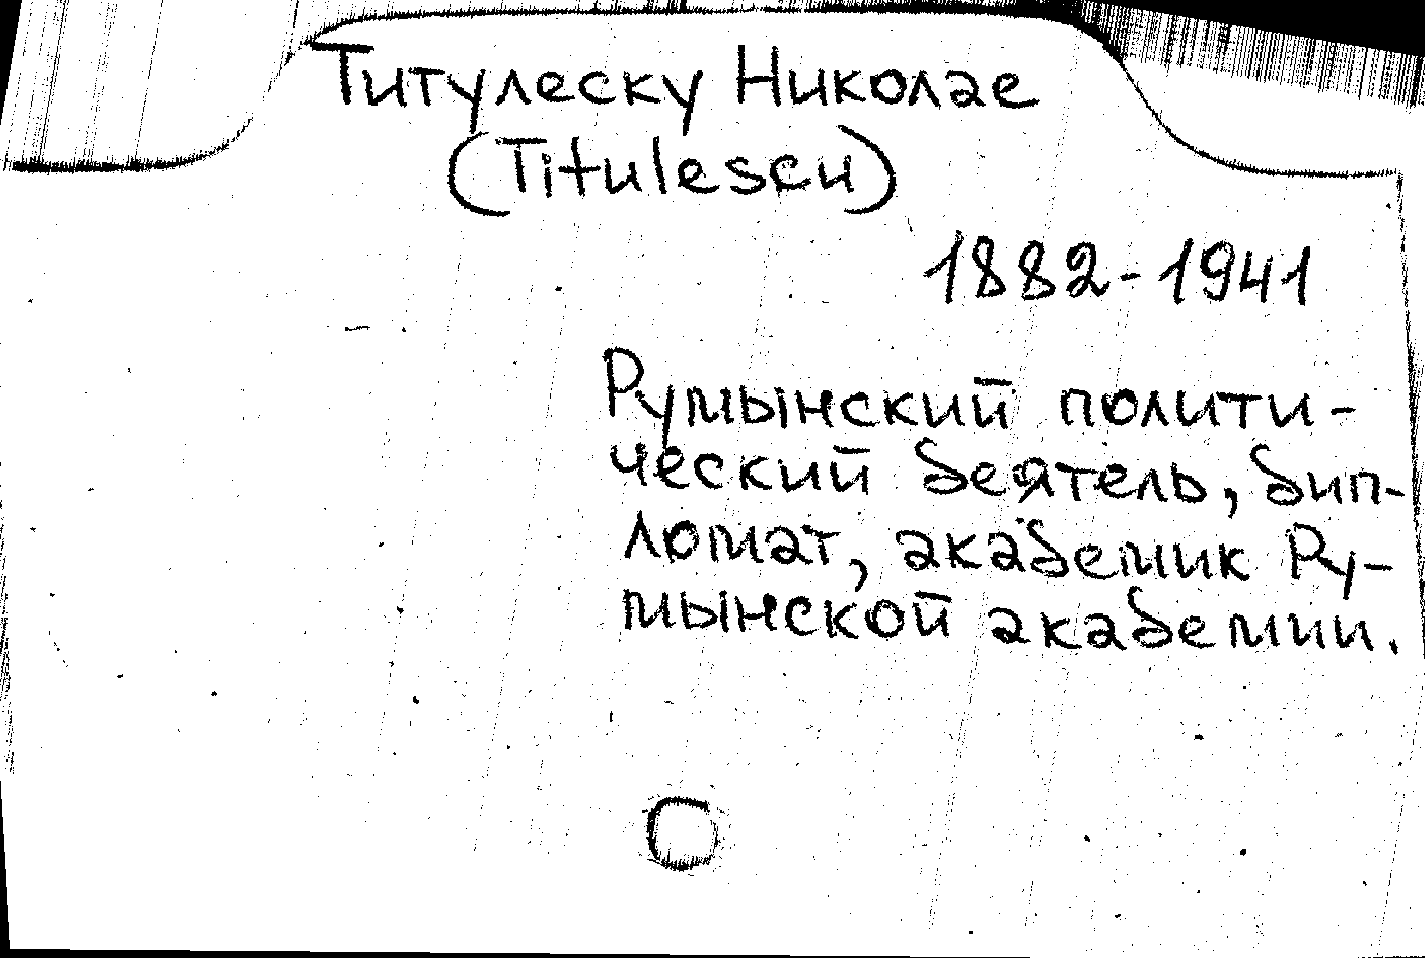 Титулеску Николае
(Titulescu)
1882-1941
Румынский полити-
ческий деятель, дип-
ломат, академик Ру-
мынской академии.